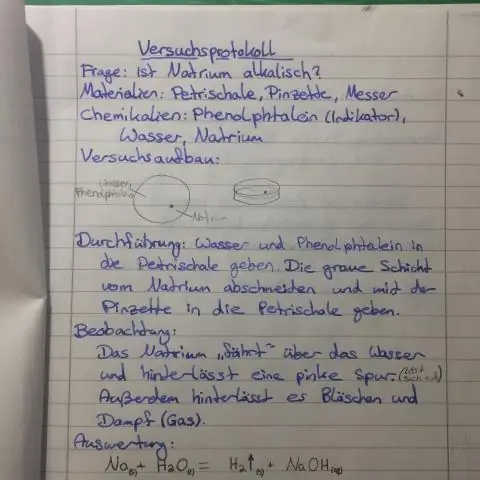 Versuchsprotokoll
Frage: Ist Natrium alkalisch?
Materialien: Petrischale, Pinzette, Messer
Chemikalien: Phenolphtalein (Indikator),
Wasser, Natrium
Versuchsaufbau:
Wasser,
Phenolphtalein
Natrium
Durchführung: Wasser und Phenolphtalein in
die Petrischale geben. Die graue Schicht
vom Natrium abschneiden und mit der
Pinzette in die Petrischale geben.
Beobachtung:
Das Natrium „fährt" über das Wasser
und hinterlässt eine pinke Spur. (löst sich auf)
Außerdem hinterlässt es Bläschen und
Dampf (Gas).
Auswertung:
Na(s) + H2O(l) = H2↑(g) + NaOH(aq)